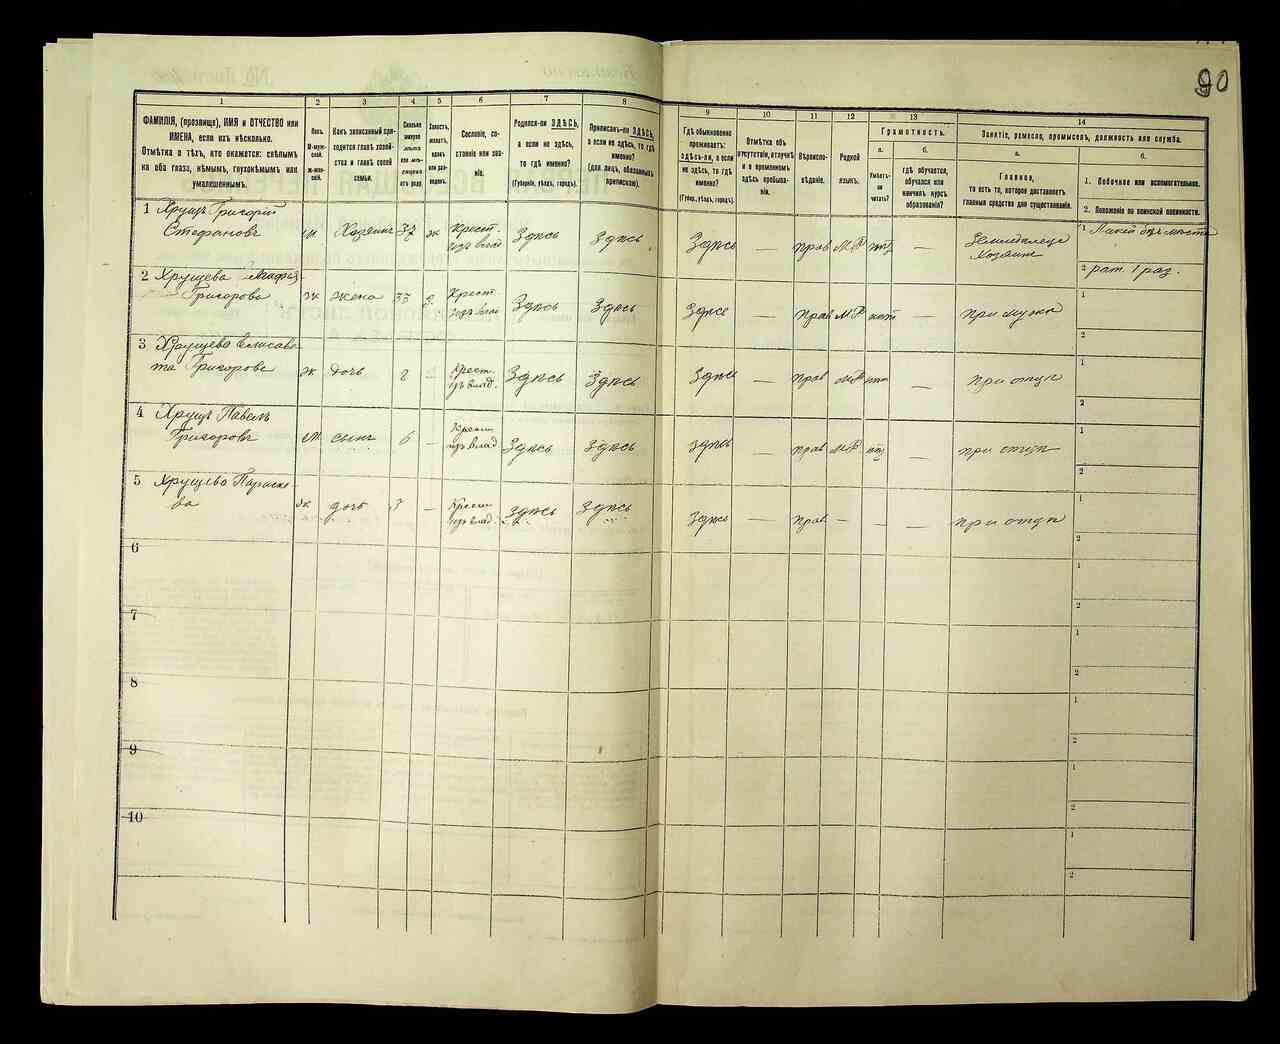 90
1 2 3 4 5 6 7 8 9 10 11 12 13 14
ФАМИЛІЯ, (прозвище), ИМЯ и ОТЧЕСТВО или
ИМЕНА, если ихъ нѣсколько.
Отмѣтка о тѣхъ, кто окажется: слѣпымъ
на оба глаза, нѣмымъ, глухонѣмымъ или
умалишеннымъ.
Полъ.
М-муж-
ской.
Ж-жен-
скій.
Какъ записанный при-
ходится главѣ хозяй-
ства и главѣ своей
семьи.
Сколько
минуло
лѣтъ
или мѣ-
сяцевъ
отъ роду.
Холостъ,
женатъ,
вдовъ
или раз-
веденъ.
Сословіе, со-
стояніе или зва-
ніе.
Родился-ли ЗДѢСЬ,
а если не здѣсь,
то гдѣ именно?
(Губернія, уѣздъ, городъ).
Приписанъ-ли ЗДѢСЬ,
а если не здѣсь, то гдѣ
именно?
(для лицъ, обязанныхъ
припискою).
Гдѣ обыкновенно
проживаетъ:
здѣсь-ли, а если
не здѣсь, то гдѣ
именно?
(Губер., уѣздъ, городъ).
Отмѣтка объ
отсутствіи, отлучкѣ
и о временномъ
здѣсь пребыва-
ніи.
Вѣроиспо-
вѣданіе.
Родной
языкъ.
Грамотность.
а.
Умѣетъ-
ли
читать?
б.
гдѣ обучается,
обучался или
кончилъ курсъ
образованія?
Занятіе, ремесло, промыселъ, должность или служба.
а.
Главное,
то есть то, которое доставляетъ
главныя средства для существованія.
б.
1. Побочное или вспомогательное.
2. Положеніе по воинской повинности.
1 Хрущъ Григорій
Стефановъ м Хозяинъ 37 ж Крест. Здѣсь Здѣсь Здѣсь — прав М.Р нт — Хозяинъ
2 рат. 1 раз.
2 Хрущева
Григорова ж жена 33 Крест. Здѣсь Здѣсь Здѣсь — прав М.Р нѣт — при мужѣ
1
2
3 Хрущева Елисаве
та Григорова ж дочь 8 — Крест. из влад. Здѣсь Здѣсь Здѣсь — прав М.Р — при отцѣ
1
2
4 Хрущъ Павелъ
Григоровъ м сынъ 6 — Крест. из влад Здѣсь Здѣсь Здѣсь — прав М.Р — при отцѣ
1
2
5 Хрущева Параске
ва ж дочь 3 — Крест из влад. Здѣсь Здѣсь Здѣсь — прав. — — — при отцѣ
1
2
6
1
2
7
1
2
8
1
2
9
1
2
10
1
2